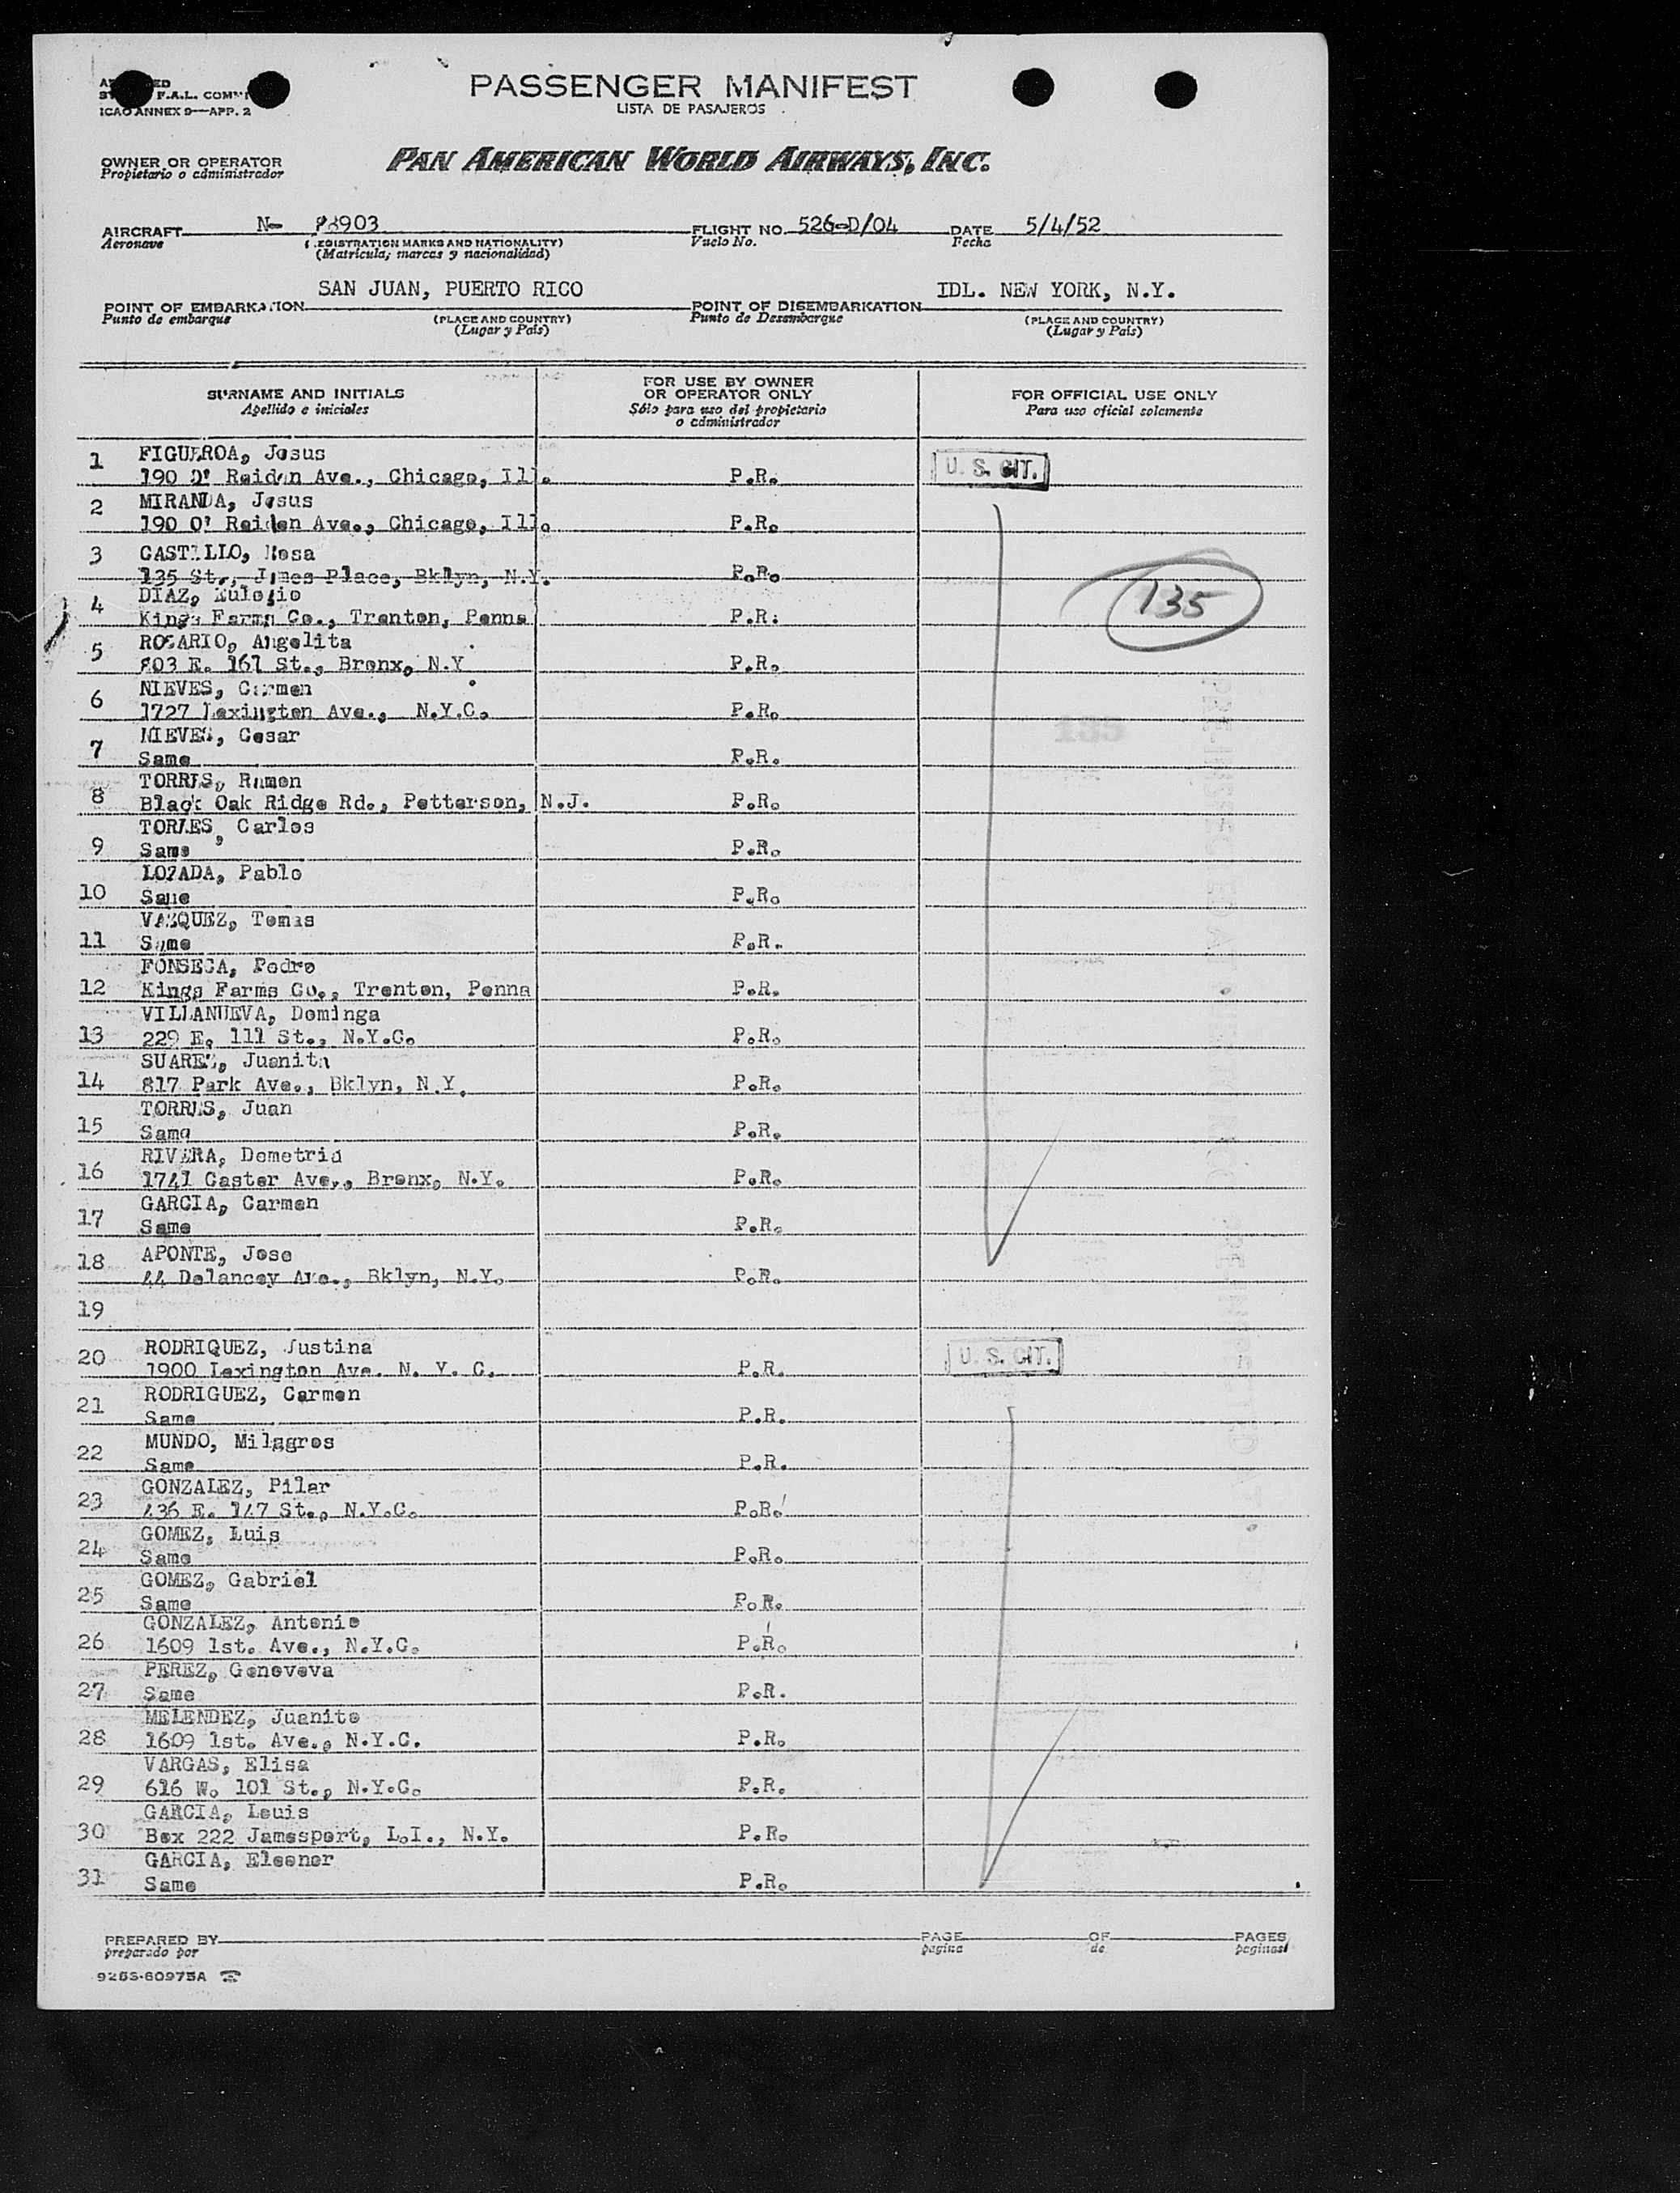 PASSENGER MANIFEST
LISTA DE PASAJEROS
F.A.L.
ICAO ANNEX 9—APP. 2
OWNER OR OPERATOR
Propietario o administrador
PAN AMERICAN WORLD AIRWAYS, INC.
AIRCRAFT N- 88903 FLIGHT NO. 526-D/04 DATE 5/4/52
Aeronave (REGISTRATION MARKS AND NATIONALITY) Vuelo No. Fecha
(Matrícula; marcas y nacionalidad)
SAN JUAN, PUERTO RICO IDL. NEW YORK, N.Y.
POINT OF EMBARKATION POINT OF DISEMBARKATION
Punto de embarque (PLACE AND COUNTRY) Punto de Desembarque (PLACE AND COUNTRY)
(Lugar y País) (Lugar y País)
SURNAME AND INITIALS FOR USE BY OWNER OR OPERATOR ONLY FOR OFFICIAL USE ONLY
Apellido e iniciales Sólo para uso del propietario o administrador Para uso oficial solamente
1 FIGUEROA, Jesus
190 O' Reiden Ave., Chicago, Ill. P.R. U. S. CIT.
2 MIRANDA, Jesus
190 O' Reiden Ave., Chicago, Ill. P.R.
3 CASTILLO, Rosa
135 St., James Place, Bklyn, N.Y. P.R.
135
4 DIAZ, Eulogio
Kings Farms Co., Trenton, Penna P.R.
5 ROSARIO, Angelita
803 E. 161 St., Bronx, N.Y P.R.
6 NIEVES, Carmen
1727 Lexington Ave., N.Y.C. P.R.
135
7 NIEVES, Cesar
Same P.R.
8 TORRES, Ramon
Black Oak Ridge Rd., Petterson, N.J. P.R.
9 TORRES, Carlos
Same P.R.
10 LOZADA, Pablo
Same P.R.
11 VAZQUEZ, Tomas
Same P.R.
12 FONSECA, Pedro
Kings Farms Co., Trenton, Penna P.R.
13 VILLANUEVA, Dominga
229 E. 111 St., N.Y.C. P.R.
14 SUAREZ, Juanita
817 Park Ave., Bklyn, N.Y. P.R.
15 TORRES, Juan
Same P.R.
16 RIVERA, Demetria
1741 Caster Ave., Bronx, N.Y. P.R.
17 GARCIA, Carmen
Same P.R.
18 APONTE, Jose
44 Delancey Ave., Bklyn, N.Y. P.R.
19
20 RODRIQUEZ, Justina
1900 Lexington Ave. N. Y. C. P.R. U. S. CIT.
21 RODRIGUEZ, Carmen
Same P.R.
22 MUNDO, Milagros
Same P.R.
23 GONZALEZ, Pilar
436 E. 147 St., N.Y.C. P.R.
24 GOMEZ, Luis
Same P.R.
25 GOMEZ, Gabriel
Same P.R.
26 GONZALEZ, Antonio
1609 1st. Ave., N.Y.C. P.R.
27 PEREZ, Genoveva
Same P.R.
28 MELENDEZ, Juanito
1609 1st. Ave., N.Y.C. P.R.
29 VARGAS, Elisa
616 W. 101 St., N.Y.C. P.R.
30 GARCIA, Louis
Box 222 Jamesport, L.I., N.Y. P.R.
31 GARCIA, Eleonor
Same P.R.
PREPARED BY PAGE OF PAGES
preparado por pagina de paginas
9265-60975A